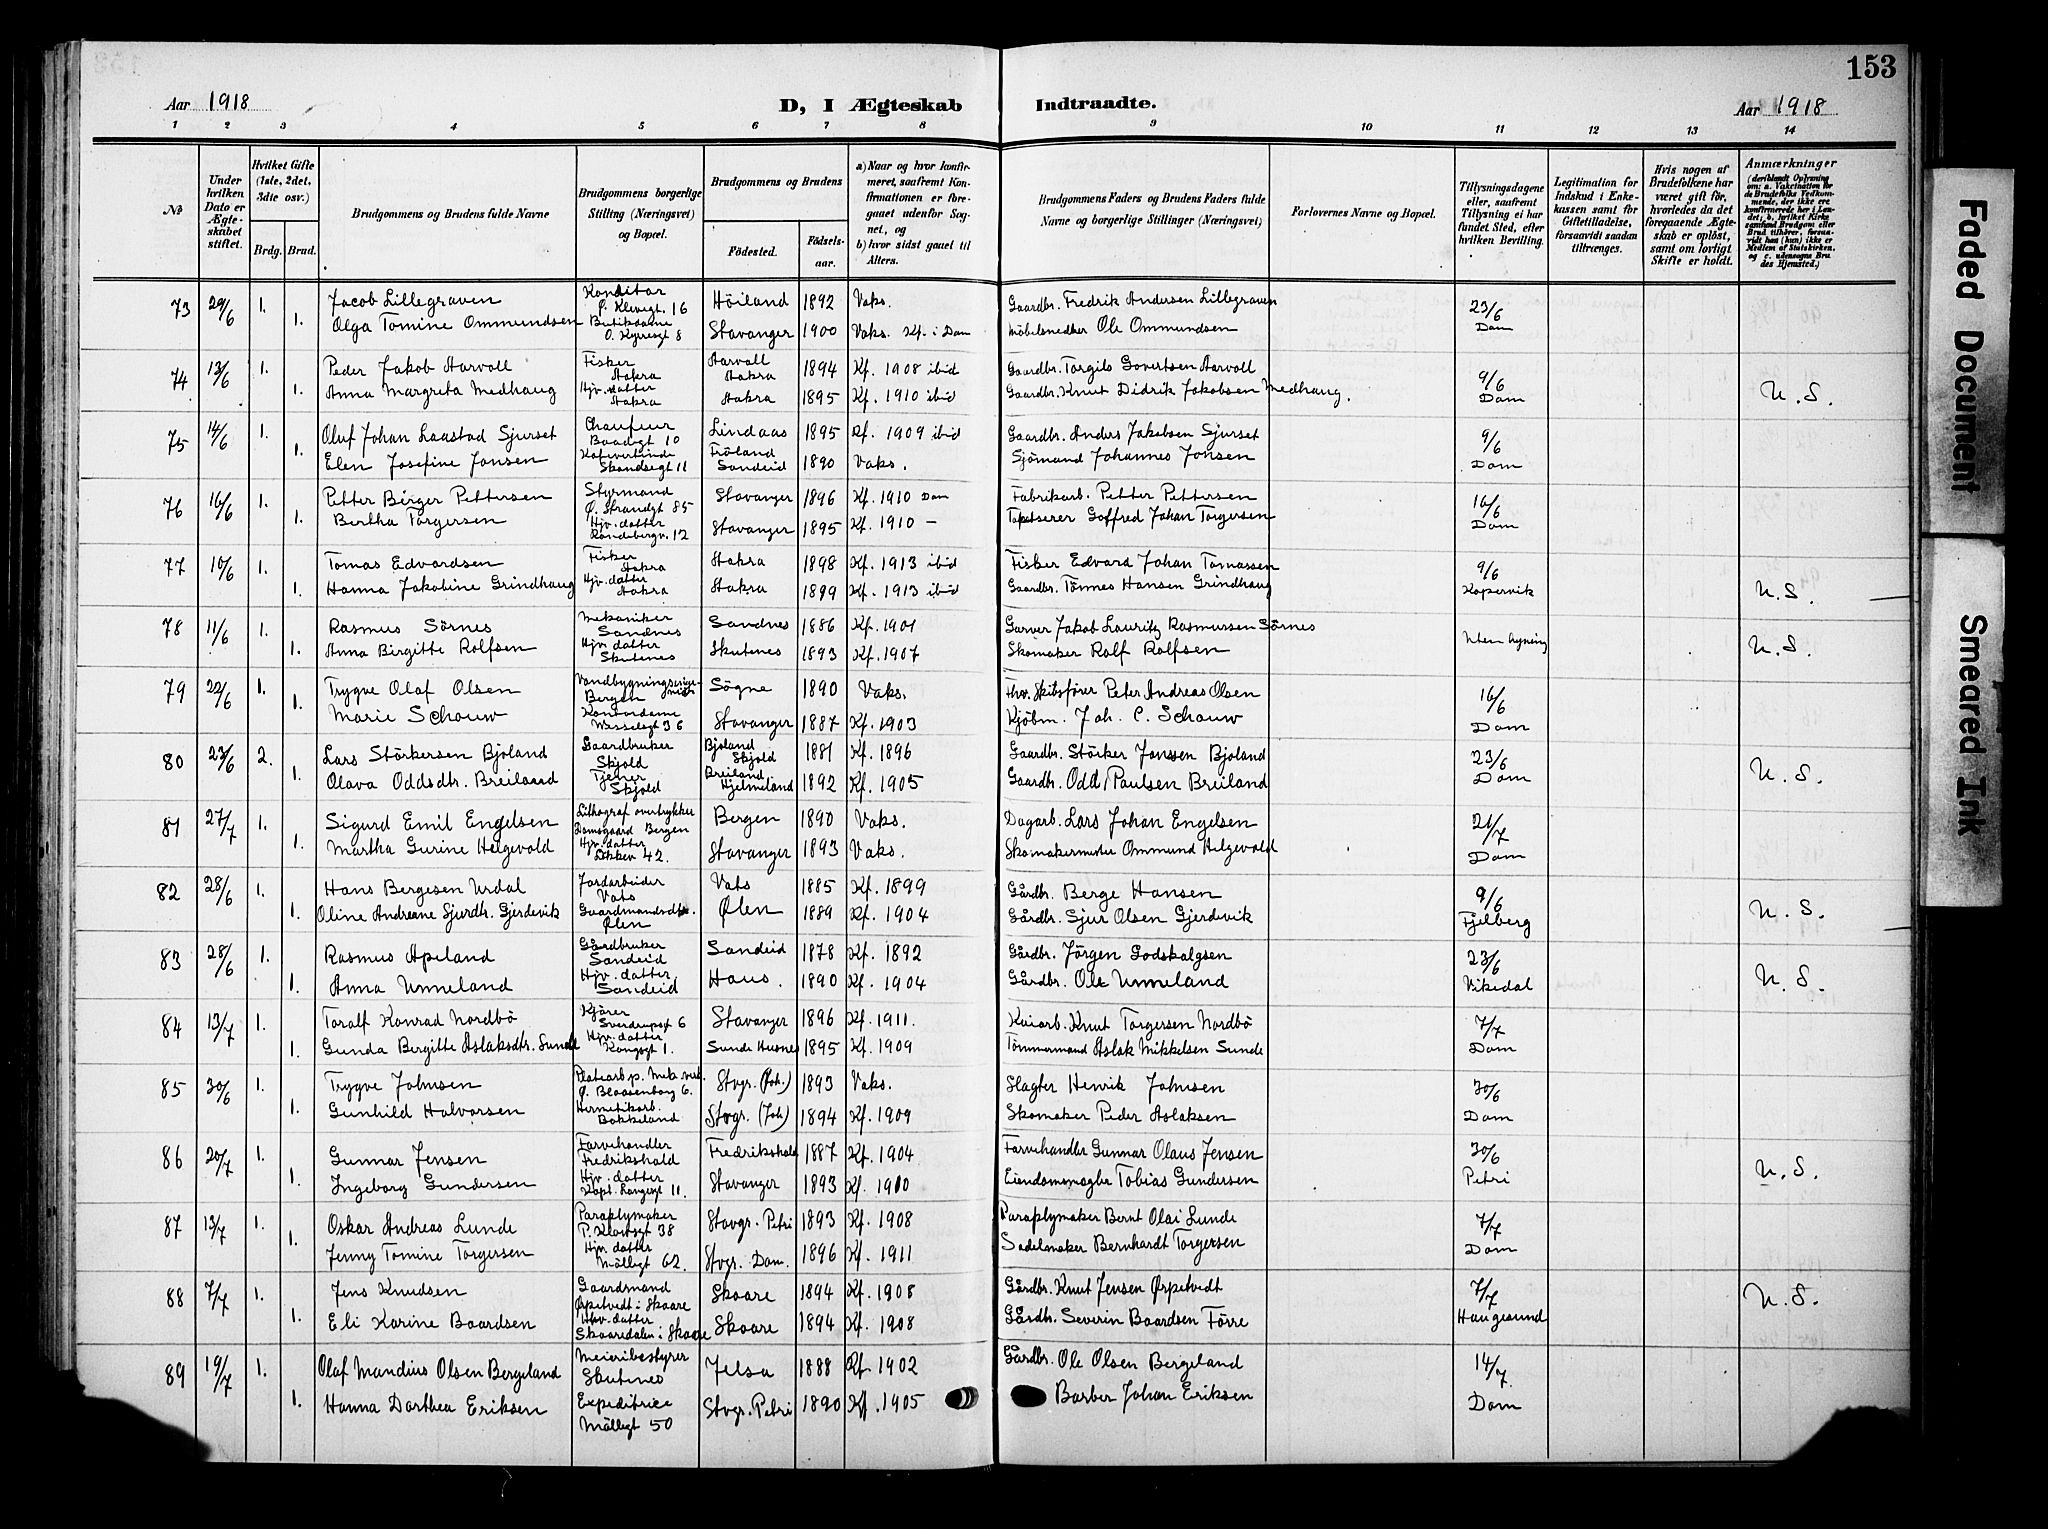 153
Aar 1918 D, I Ægteskab Indtraadte. Aar 1918
1 2 3 4 5 6 7 8 9 10 11 12 13 14
No
Under hvilken Dato er Ægteskabet stiftet.
Hvilket Gifte (1ste, 2det, 3die osv.)
Brdg. Brud.
Brudgommens og Brudens fulde Navne
Brudgommens borgerlige Stilling (Næringsvei) og Bopæl.
Brudgommens og Brudens
Fødested. Fødselsaar.
a) Naar og hvor konfirmeret, saafremt Konfirmationen er foregaaet udenfor Sognet, og
b) hvor sidst gaaet til Alters.
Brudgommens Faders og Brudens Faders fulde Navne og borgerlige Stillinger (Næringsvei)
Forlovernes Navne og Bopæl.
Tillysningsdagene eller, saafremt Tillysning ei har fundet Sted, efter hvilken Bevilling.
Legitimation for Indskud i Enkekassen samt for Giftetilladelse, forsaavidt saadan tiltrænges.
Hvis nogen af Brudefolkene har været gift før, hvorledes da det foregaaende Ægteskab er opløst, samt om lovligt Skifte er holdt.
Anmærkninger
(deriblandt Oplysning om: a. Vakcination for de Brudefolks Vedkommende, der ikke ere konfirmerede her i Landet; b. hvilket Kirkesamfund Brudgom eller Brud tilhører, forsaavidt han (hun) ikke er Medlem af Statskirken, og c. udensogns Brudes Hjemsted.)
73 29/6 1. Jacob Lillegraven Konditor Ø. Klevegt. 16 Høiland 1892 Vaks. Gaardbr. Fredrik Andersen Lillegraven 23/6
1. Olga Tomine Ommundsen Butikdame O. Kyrresgt 8 Stavanger 1900 Vaks. Kf. i Dom Møbelsnedker Ole Ommundsen Dom
74 13/6 1. Peder Jakob Aarvoll Fisker Aakra Aarvoll Aakra 1894 Kf. 1908 ibid Gaardbr. Torgils Govertsen Aarvoll 9/6
1. Anna Margreta Medhaug Hjv. datter Aakra Aakra 1895 Kf. 1910 ibid Gaardbr. Knut Didrik Jakobsen Medhaug. Dom U. S.
75 14/6 1. Oluf Johan Laastad Sjurset Chauffeur Baadegt 10 Lindaas 1895 Kf. 1909 ibid Gaardbr. Anders Jakobsen Sjurset 9/6
1. Elen Josefine Jonsen Skandsegt 11 Frøland Sandeid 1890 Vaks. Sjømand Johannes Jonsen Dom
76 16/6 1. Petter Birger Pettersen Styrmand Ø. Strandgt 85 Stavanger 1896 Kf. 1910 Dom Fabrikarb. Petter Pettersen 16/6
1. Bertha Torgersen Hjv. datter Randebergv. 12 Stavanger 1895 Kf. 1910 — Tapetserer Goffred Johan Torgersen Dom
77 10/6 1. Tomas Edvardsen Fisker Aakra Aakra 1898 Kf. 1913 ibid Fisker Edvard Johan Tomassen 9/6
1. Hanna Jakobine Grindhaug Hjv. datter Aakra Aakra 1899 Kf. 1913 ibid Gaardbr. Tønnes Hansen Grindhaug Kopervik U. S.
78 11/6 1. Rasmus Sørnes Mekaniker Sandnes Sandnes 1886 Kf. 1901 Garver Jakob Lauritz Rasmussen Sørnes
1. Anna Birgitte Rolfsen Hjv. datter Skutenes Skutenes 1893 Kf. 1907 Skomaker Rolf Rolfsen Uten lysning U. S.
79 22/6 1. Trygve Olaf Olsen Bergen Søgne 1890 Vaks. Fhv. Skibsfører Peter Andreas Olsen 16/6
1. Marie Schouw Kontordame Wesselsgt 36 Stavanger 1887 Kf. 1903 Kjøbm. Joh. C. Schouw Dom
80 23/6 2. Lars Størkersen Bjoland Gaardbruker Skjold Bjoland Skjold 1881 Kf. 1896 Gaardbr. Størker Jonssen Bjoland 23/6
1. Olava Oddsdtr. Breiland Tjener Skjold Breiland Hjelmeland 1892 Kf. 1905 Gaardbr. Odd Paulsen Breiland Dom U. S.
81 27/7 1. Sigurd Emil Engelsen Lithograf overtrykker Damsgaard Bergen Bergen 1890 Vaks. Dagarb. Lars Johan Engelsen 21/7
1. Martha Gurine Helgevold Hjv. datter 42. Stavanger 1893 Vaks. Skomakermester Ommund Helgevold Dom
82 28/6 1. Hans Bergesen Urdal Jordarbeider Vats Vats 1885 Kf. 1899 Gårdbr. Berge Hansen 9/6
1. Oline Andreane Sjurdtr. Gjerdevik Gaardmandsdtr. Ølen Ølen 1889 Kf. 1904 Gårdbr. Sjur Olsen Gjerdevik Fjelberg U. S.
83 28/6 1. Rasmus Apeland Gårdbruker Sandeid Sandeid 1878 Kf. 1892 Gårdbr. Jørgen Godskalgsen 23/6
1. Anna Unneland Hjv. datter Sandeid Haus. 1890 Kf. 1904 Gårdbr. Ole Unneland Vikedal U. S.
84 13/7 1. Toralf Konrad Nordbø Kjører Sverdrupsgt 6 Stavanger 1896 Kf. 1911. Kaiarb. Knut Torgersen Nordbø 7/7
1. Gunda Bergitte Aslaksdtr. Sunde Hjv. datter Kongsgt 1. Sunde Husnes 1895 Kf. 1909 Tømmermand Aslak Mikkelsen Sunde Dom
85 30/6 1. Trygve Johnsen Platearb. p. Mek. verk. Ø. Blaasenborg 6. Stvgr. (Joh.) 1893 Vaks. Slagter Henrik Johnsen 30/6
1. Gunhild Halvorsen Hermetikarb. Bakkeland Stvgr. (Joh) 1894 Kf. 1909 Skomaker Peder Aslaksen Dom
86 20/7 1. Gunnar Jensen Farvehandler Fredrikshald Fredrikshald 1887 Kf. 1904 Farvehandler Gunnar Olaus Jensen 30/6
1. Ingeborg Gundersen Hjv. datter Kapt. Langesgt 11. Stavanger 1893 Kf. 1910 Eiendomsmægler Tobias Gundersen Petri U. S.
87 13/7 1. Oskar Andreas Lunde Paraplymaker P. Klowsgt 38 Stavgr. Petri 1893 Kf. 1908 Paraplymaker Bernt Olai Lunde 7/7
1. Jenny Tomine Torgersen Hjv. datter Møllegt 62. Stvgr. Dom. 1896 Kf. 1911 Sadelmaker Bernhardt Torgersen Dom
88 7/7 1. Jens Knudsen Gaardsmand Ørpetvedt i Skaare Skaare 1894 Kf. 1908 Gårdbr. Knut Jensen Ørpetvedt 7/7
1. Eli Karine Baardsen Hjv. datter Skaaredalen i Skaare Skaare 1894 Kf. 1908 Gårdbr. Severin Baardsen Førre Haugesund U. S.
89 19/7 1. Olaf Mandius Olsen Bergeland Meieribestyrer Skutnes Jelsa 1888 Kf. 1902 Gårdbr. Ole Olsen Bergeland 14/7.
1. Hanna Dorthea Eriksen Expeditrice Møllegt 50 Stvgr. Petri 1890 Kf. 1905 Barber Johan Eriksen Dom
Faded Document
Smeared Ink